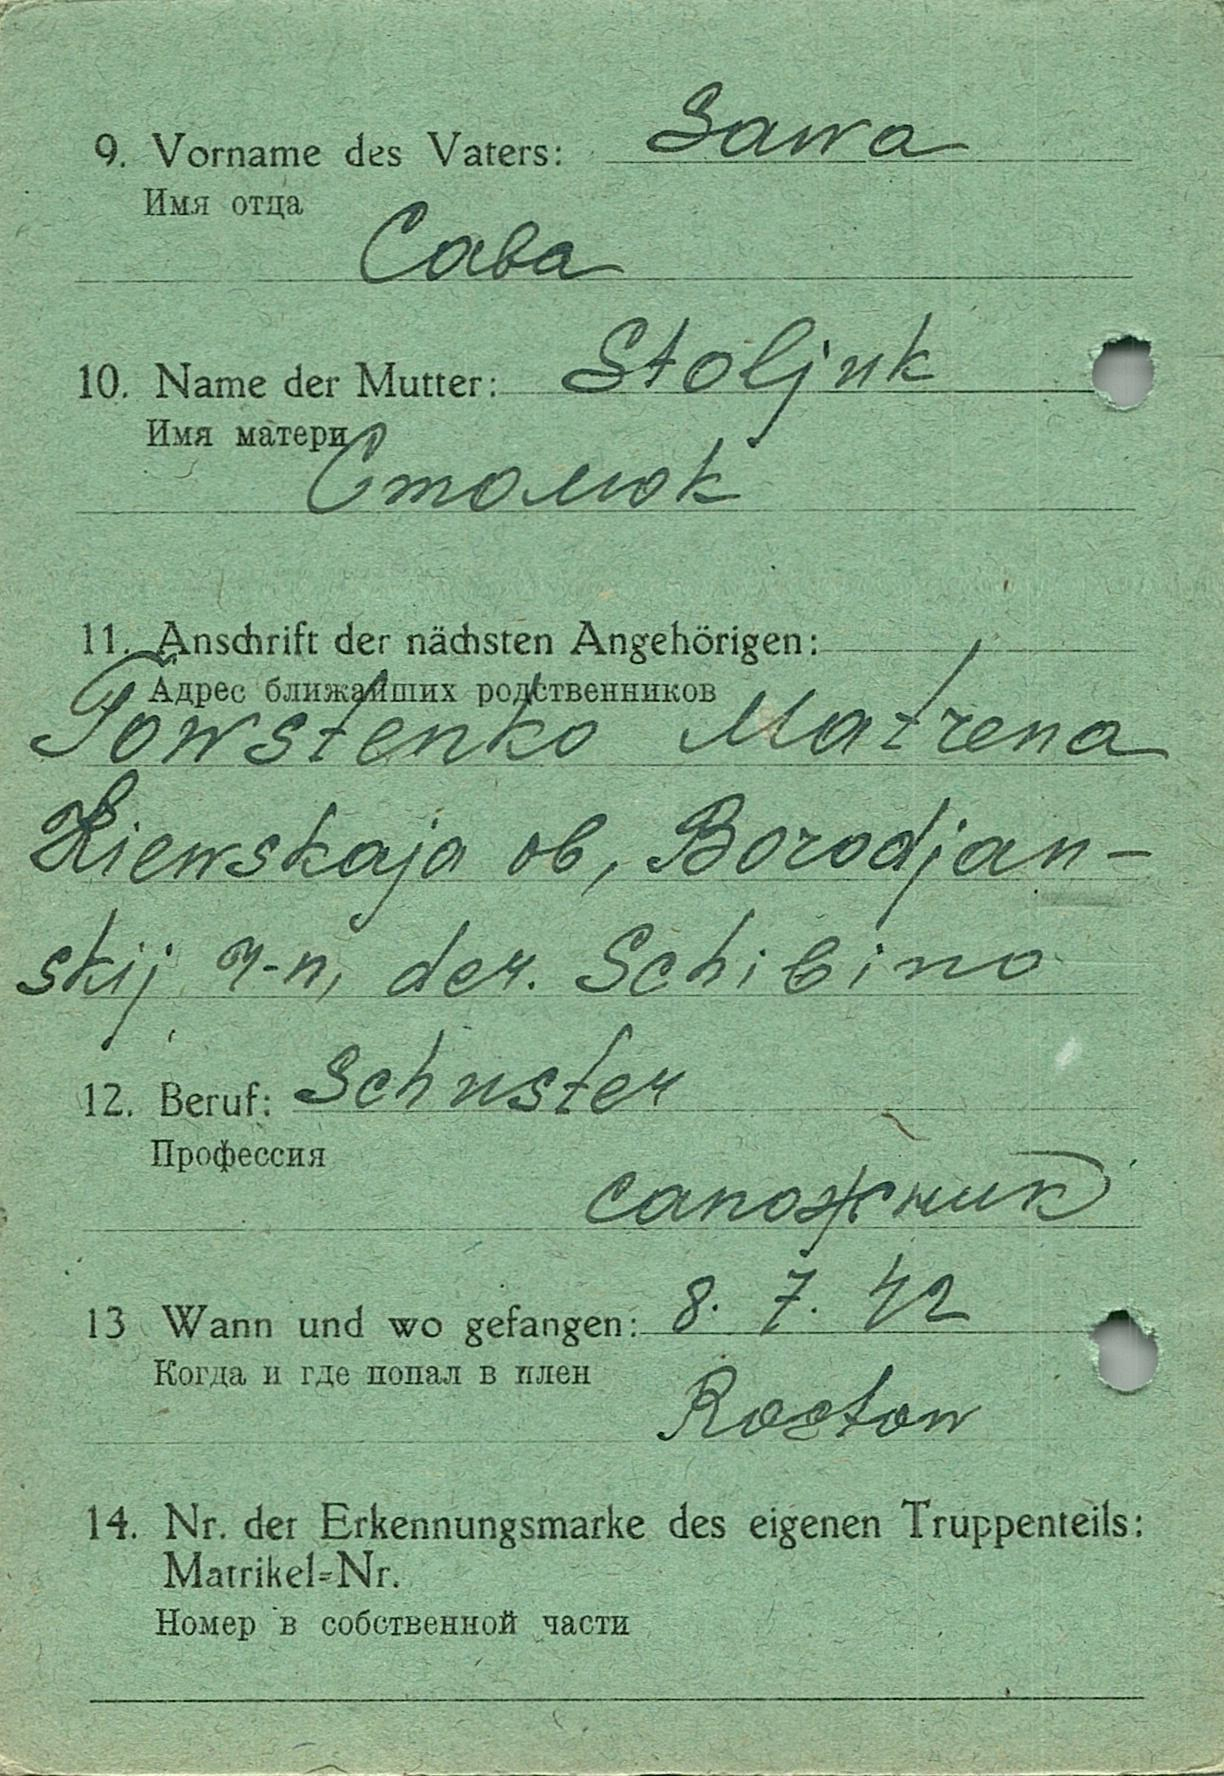 9. Vorname des Vaters: Sawa
Имя отца
Сава
10. Name der Mutter: Stoljuk
Имя матери
Столюк
11. Anschrift der nächsten Angehörigen:
Адрес ближайших родственников
Towstenko Matrena
Kiewskaja ob, Borodjan-
skij r-n, der. Schibino
12. Beruf: Schuster
Профессия
сапожник
13 Wann und wo gefangen: 8. 7. 42
Когда и где попал в плен
Rostow
14. Nr. der Erkennungsmarke des eigenen Truppenteils:
Matrikel-Nr.
Номер в собственной части